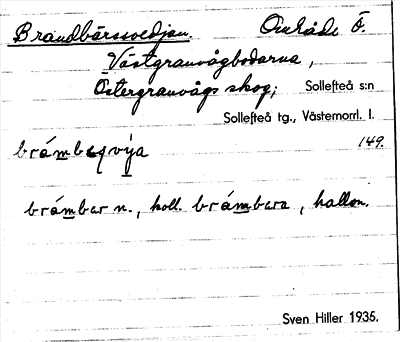 Brandbärssvedjan. Område Ö.
Västgranvågbodarna,
Östergranvågs skog, Sollefteå s:n
Sollefteå tg., Västernorrl. l.
149.
brámbar n., koll. brámbara, hallon.
Sven Hiller 1935.